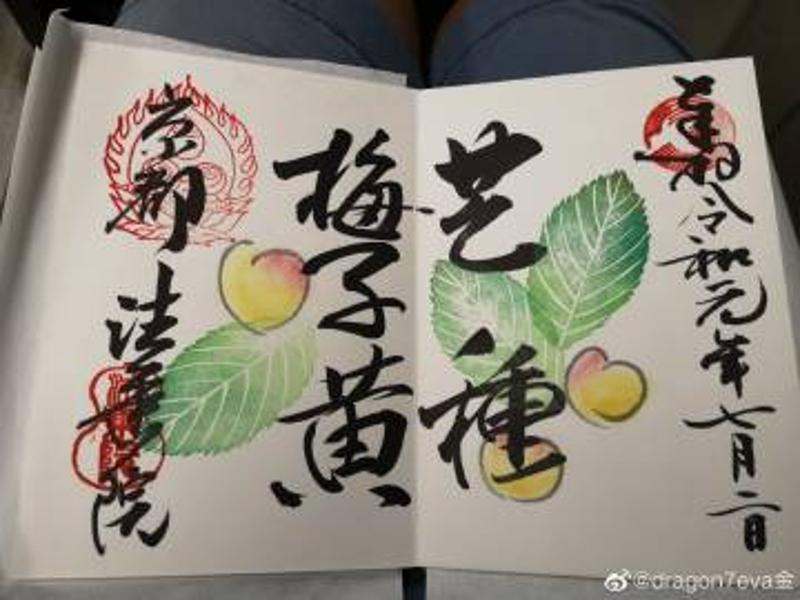 奉拝 令和元年七月二日
芒種
梅子黄
京都 法華院
@dragon7eva金